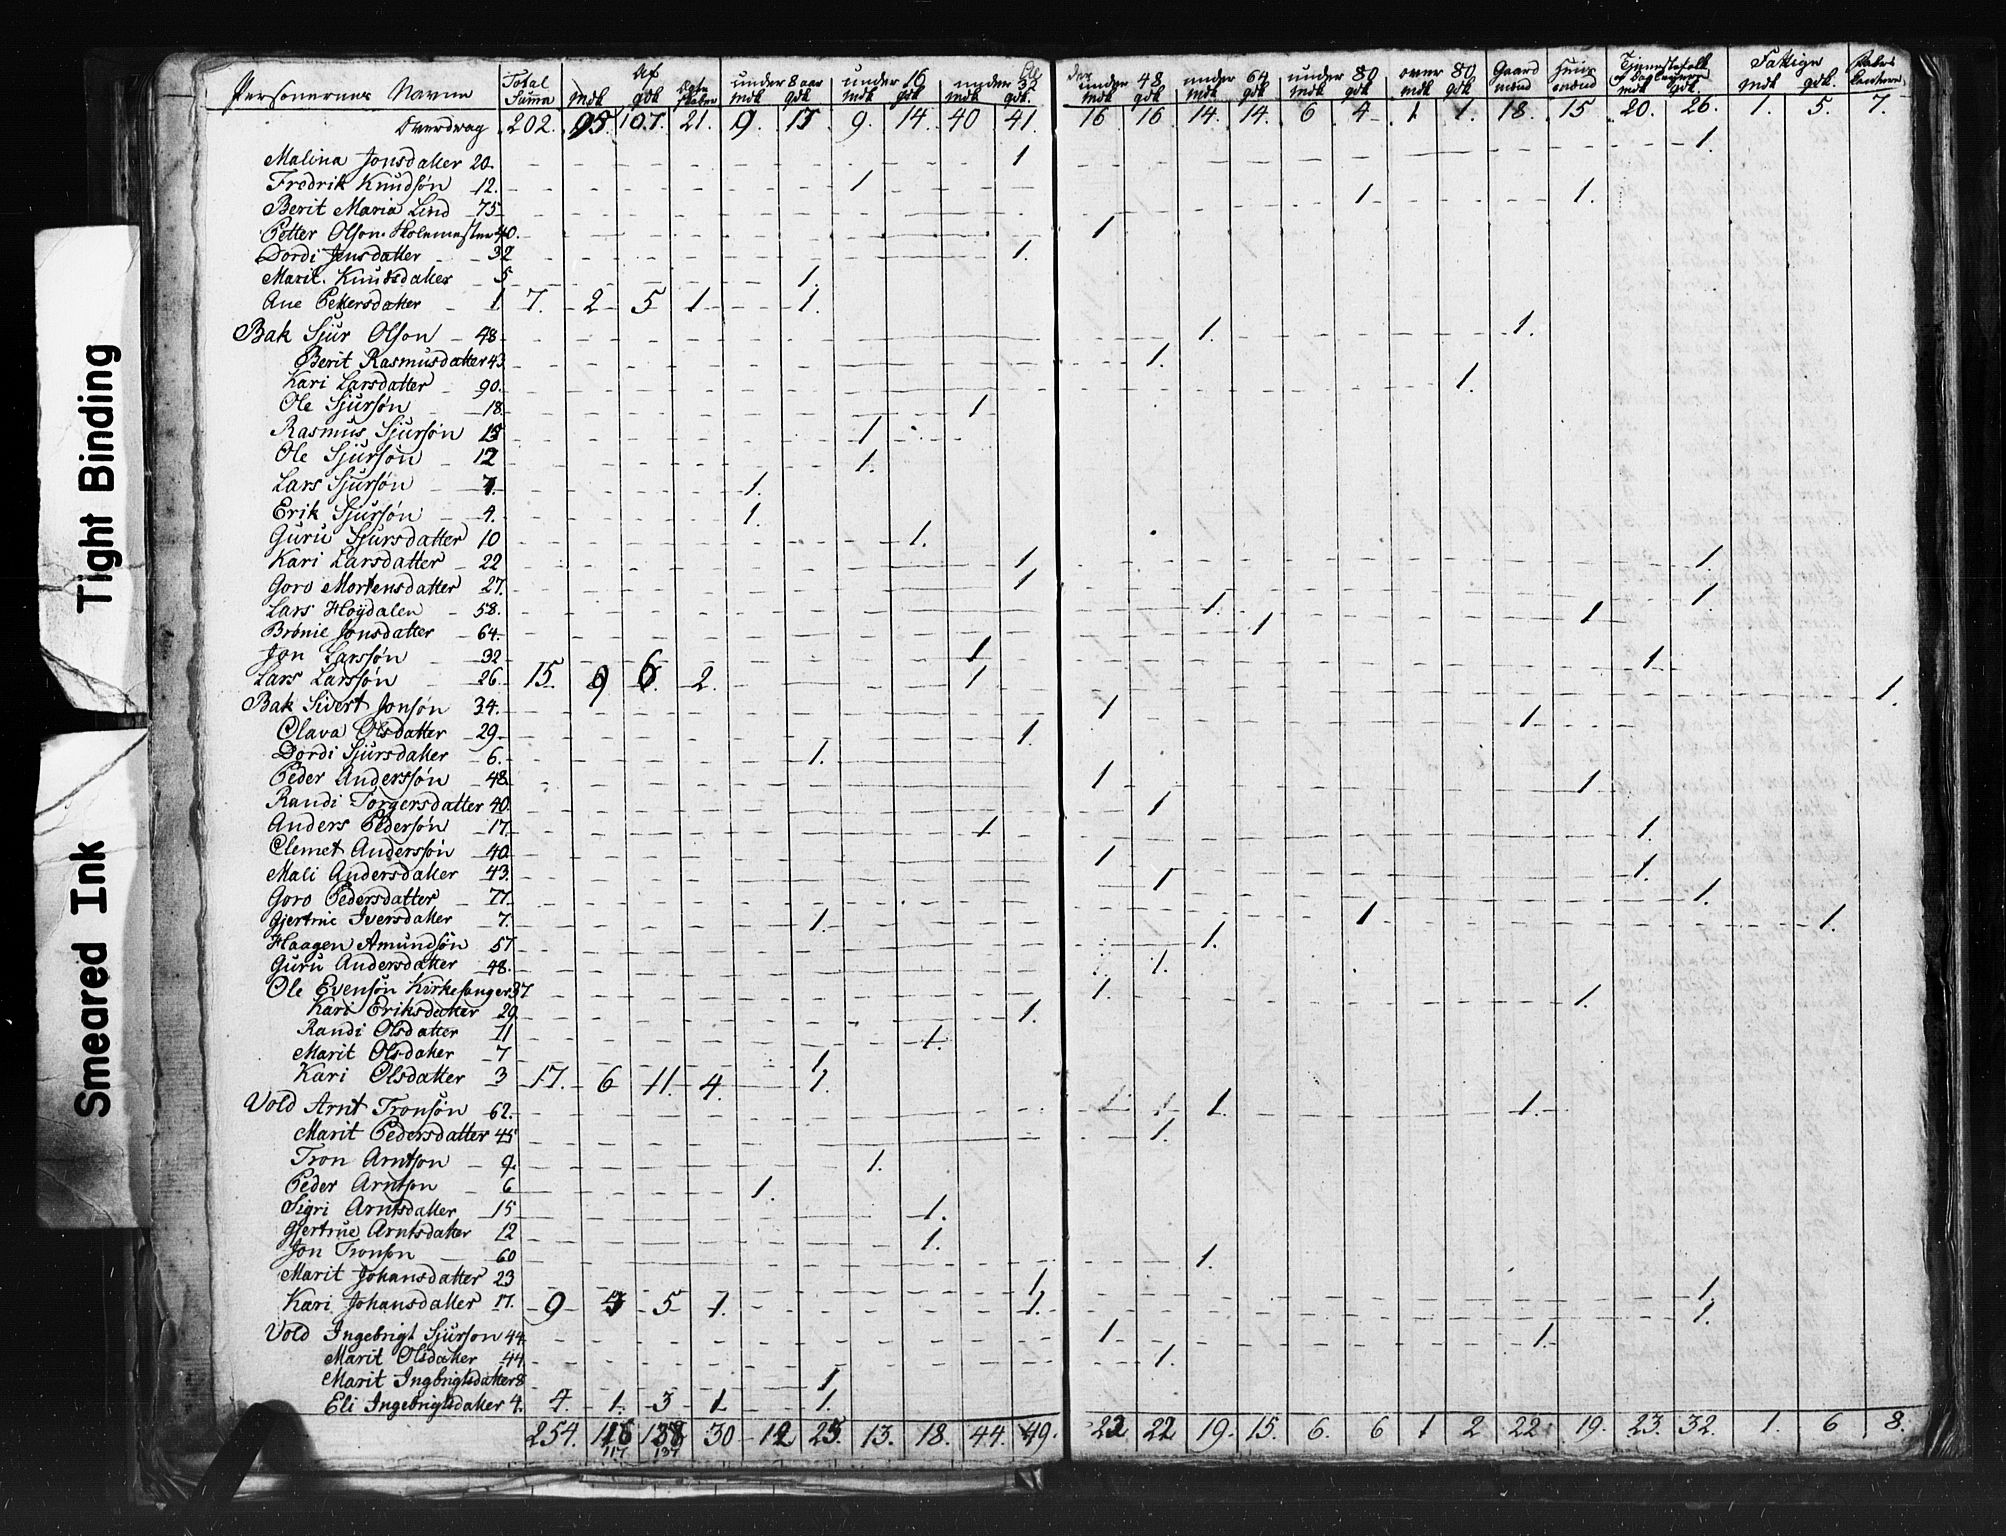 Tight Binding
Smeared Ink
Personernes Navne Total Summa Af mdk qdk under 8 aar mdk qdk under 16 mdk qdk under 32 mdk qdk. under 48 mdk qdk under 64 mdk qdk under 80 mdk qdk over 80 mdk qdk Gaard mænd Huus mænd Tjenestefolk mdk qdk. Fattige mdk qdk.
Overdrag 202. 95 107. 21. 9. 15 9. 14. 40 41. 16 16. 14. 14. 6 4 1 1. 18. 15 20. 26. 1. 5. 7.
Malina Jonsdatter 20. 1 1.
Fredrik Knudsøn 12. 1
Berit Maria Lind 75 1 1.
Petter Olson 40. 1
Dordi Jensdatter 32 1.
Marit Knutsdatter 5 1.
Ane Pettersdatter 1 7. 2 5 1 1.
Bak Sjur Olson 48 1. 1.
Berit Rasmusdatter 43 1.
Kari Larsdatter 90. 1.
Ole Sjursøn 18. 1
Rasmus Sjursøn 15 1.
Ole Sjursøn 12 1.
Lars Sjursøn 7. 1.
Erik Sjursøn 4. 1.
Guru Sjursdatter 10 1.
Kari Larsdatter 22 1 1.
Goro Mortensdatter 27. 1 1.
Lars Høydalen 58. 1. 1
Brønie Jonsdatter 64. 1
Jon Larssøn 32 1 1
Lars Larssøn 26. 15. 9 6. 2. 1 1.
Bak Sivert Jonsøn 34. 1. 1.
Olava Olsdatter 29 1.
Dordi Sjursdatter 6. 1.
Peder Anderssøn 48. 1 1.
Randi Torgersdatter 40. 1
Anders Pedersøn 17. 1 1.
Clemet Anderssøn 40. 1 1.
Mali Andersdatter 43. 1 1.
Goro Pedersdatter 77. 1 1.
Gjertrue Iversdatter 7. 1.
Haagen Amundsøn 57 1.
Guru Andersdatter 48. 1.
Ole Evensøn Kirkesanger 37 1. 1.
Kari Eriksdatter 29. 1.
Randi Olsdatter 11 1.
Marit Olsdatter 7 1
Kari Olsdatter 3 17. 6 11 4. 1.
Vold Arnt Tronsøn 62. 1. 1.
Marit Pedersdatter 45 1.
Tron Arntson 9 1.
Peder Arntson 6 1.
Sigri Arntsdatter 15 1.
Gjertrue Arntsdatter 12 1.
Jon Tronson 60 1.
Marit Johansdatter 23 1 1.
Kari Johansdatter 17. 9 5 1. 1. 1.
Vold Ingebrigt Sjurson 44 1 1.
Marit Olsdatter 44 1.
Marit Ingbrigtsdatter 8 1
Eli Ingebrigtsdatter 4. 4. 1. 3 1 1.
254. 30 12 25. 13. 18. 44. 49. 22 22 19. 15. 6. 6 1 2 22 19. 23. 32. 1. 6 8.
117 137